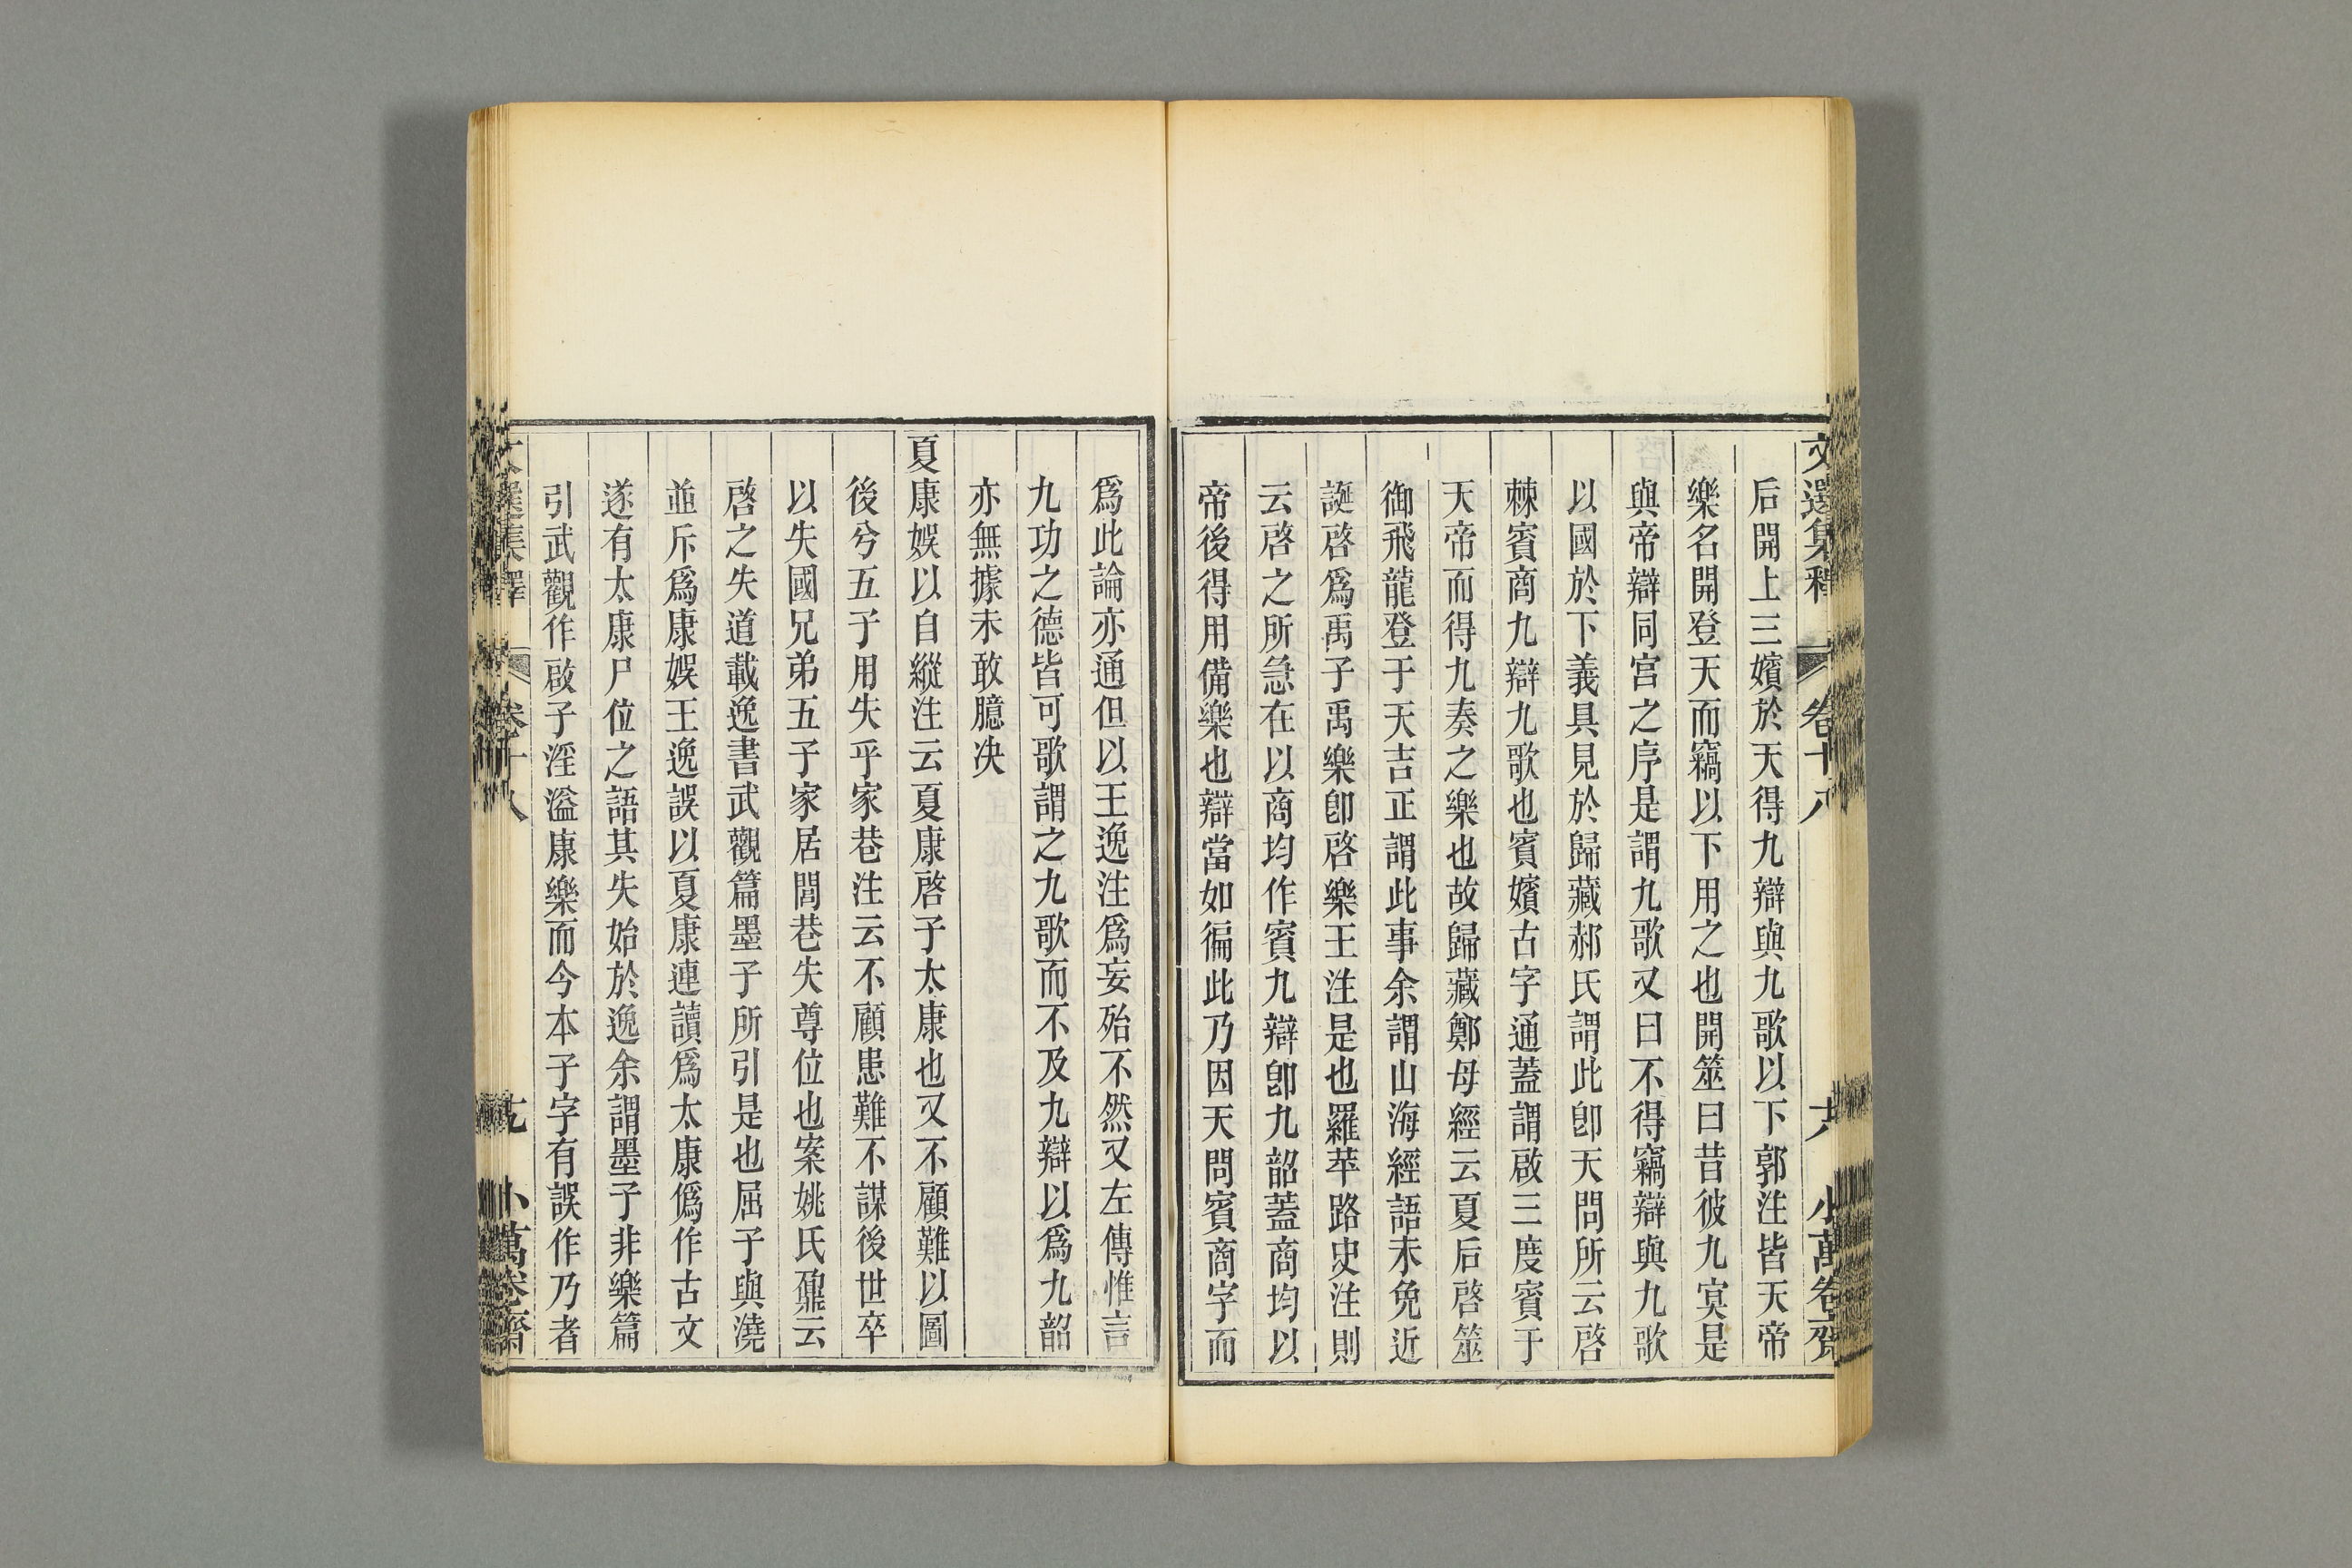 文選集釋 卷十八 十六 小萬卷齋
后開上三嬪於天得九辯與九歌以下郭注皆天帝
樂名開登天而竊以下用之也開筮曰昔彼九冥是
與帝辯同宮之序是謂九歌又曰不得竊辯與九歌
以國於下義具見於歸藏郝氏謂此卽天問所云啓
棘賓商九辯九歌也賓嬪古字通蓋謂啟三度賓于
天帝而得九奏之樂也故歸藏鄭母經云夏后啓筮
御飛龍登于天吉正謂此事余謂山海經語未免近
誕啓爲禹子禹樂卽啓樂王注是也羅苹路史注則
云啓之所急在以商均作賓九辯卽九韶蓋商均以
帝後得用備樂也辯當如徧此乃因天問賓商字而
爲此論亦通但以王逸注爲妄殆不然又左傳惟言
九功之德皆可歌謂之九歌而不及九辯以爲九韶
亦無據未敢臆决
夏康娛以自縱注云夏康啓子太康也又不顧難以圖
後兮五子用失乎家巷注云不顧患難不謀後世卒
以失國兄弟五子家居閭巷失尊位也案姚氏鼐云
啓之失道載逸書武觀篇墨子所引是也屈子與澆
並斥爲康娛王逸誤以夏康連讀爲太康僞作古文
遂有太康尸位之語其失始於逸余謂墨子非樂篇
引武觀作啟子淫溢康樂而今本子字有誤作乃者
文選集釋 卷十八 小萬卷齋